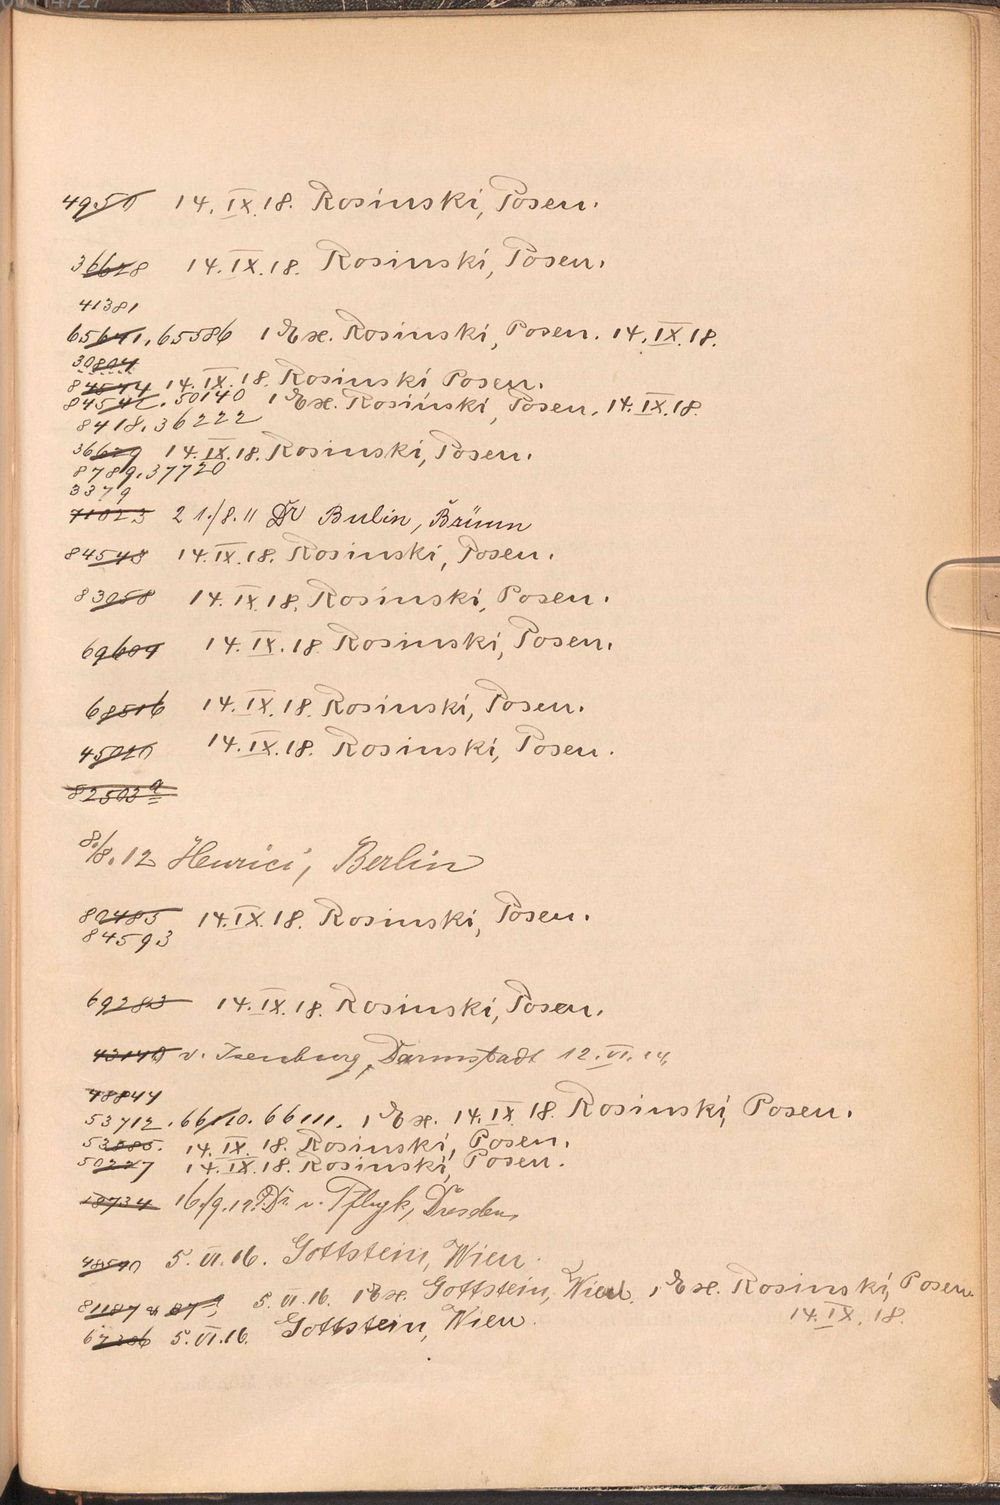 4950 14. IX. 18. Rosinski, Posen.
36628 14. IX. 18. Rosinski, Posen.
41381
65641, 65586 1 Ex. Rosinski, Posen. 14. IX. 18.
30804
84544 14. IX. 18. Rosinski Posen.
84542. 50140 1 Ex. Rosinski, Posen. 14. IX. 18.
8418. 36222
36629 14. IX. 18. Rosinski, Posen.
8789. 37720
3379
71023 21./8. 11 Dr Bulin, Brünn
84548 14. IX. 18. Rosinski, Posen.
83058 14. IX. 18. Rosinski, Posen.
69609 14. IX. 18. Rosinski, Posen.
68516 14. IX. 18. Rosinski, Posen.
14. IX. 18. Rosinski, Posen.
82503a
8./8. 12 Henrici, Berlin
82485 14. IX. 18. Rosinski, Posen.
84593
69283 14. IX. 18. Rosinski, Posen.
43140 v. Isenburg, Darmstadt 12. VI. 14.
48844
53712. 66110. 66111. 1 Ex. 14. IX. 18. Rosinski, Posen.
14. IX. 18. Rosinski, Posen.
50227 14. IX. 18. Rosinski, Posen.
18734 16./9. Dr. v. Pflugk, Dresden
5. VI. 16. Gottstein, Wien.
5. VI. 16. 1 Ex. Gottstein, Wien. 1 Ex. Rosinski, Posen.
14. IX. 18.
5. VI. 16. Gottstein, Wien.